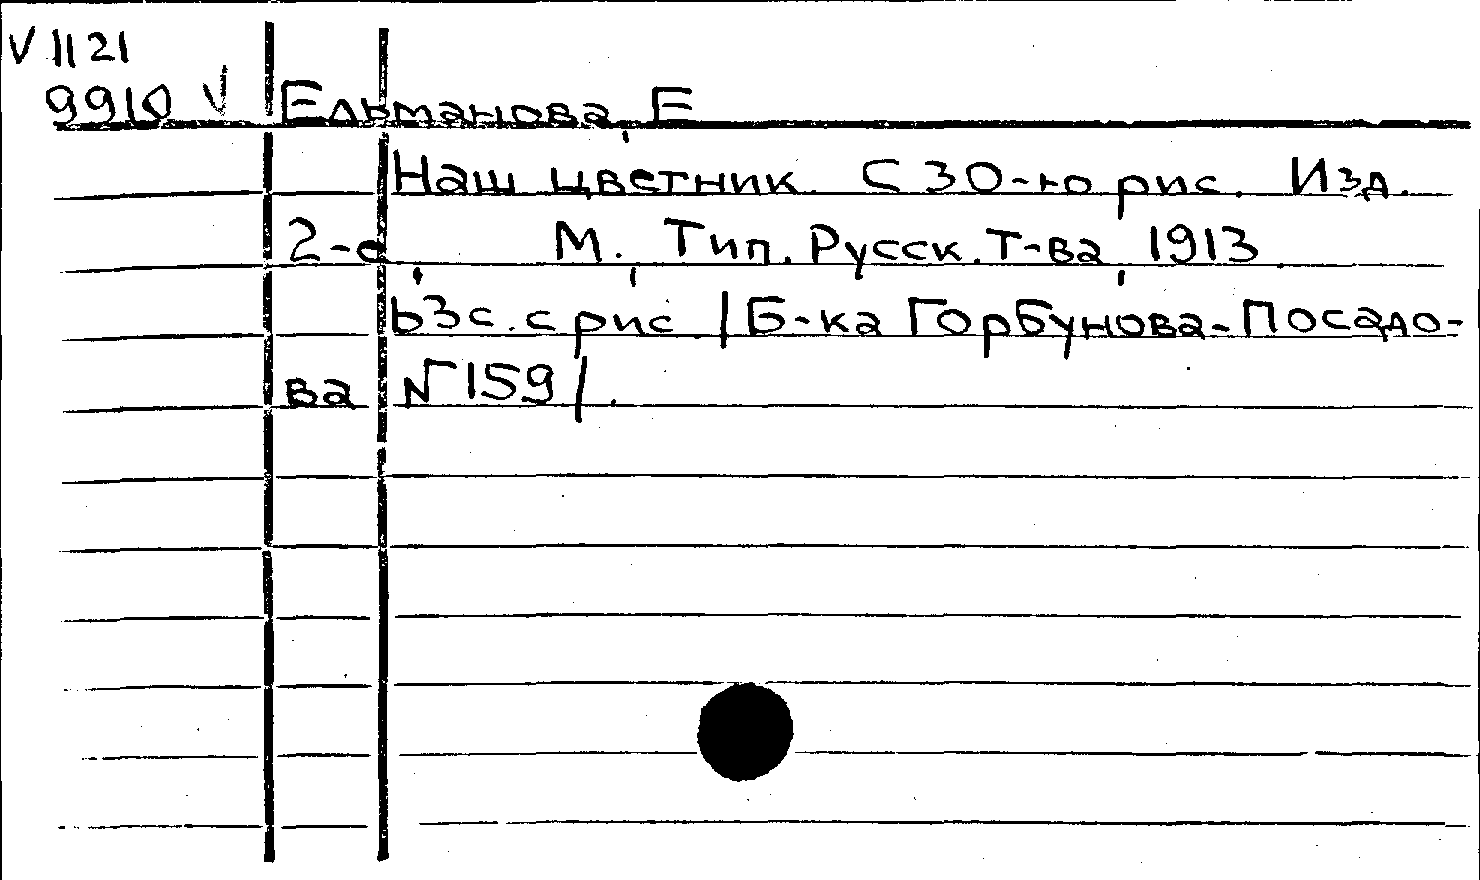 V 1121
9910 V Ельманова, Е
Наш цветник. С 30-ю рис. Изд.
2-е, М., Тип. Русск. Т-ва, 1913.
63с. с рис /Б-ка Горбунова-Посадо-
ва № 159/.